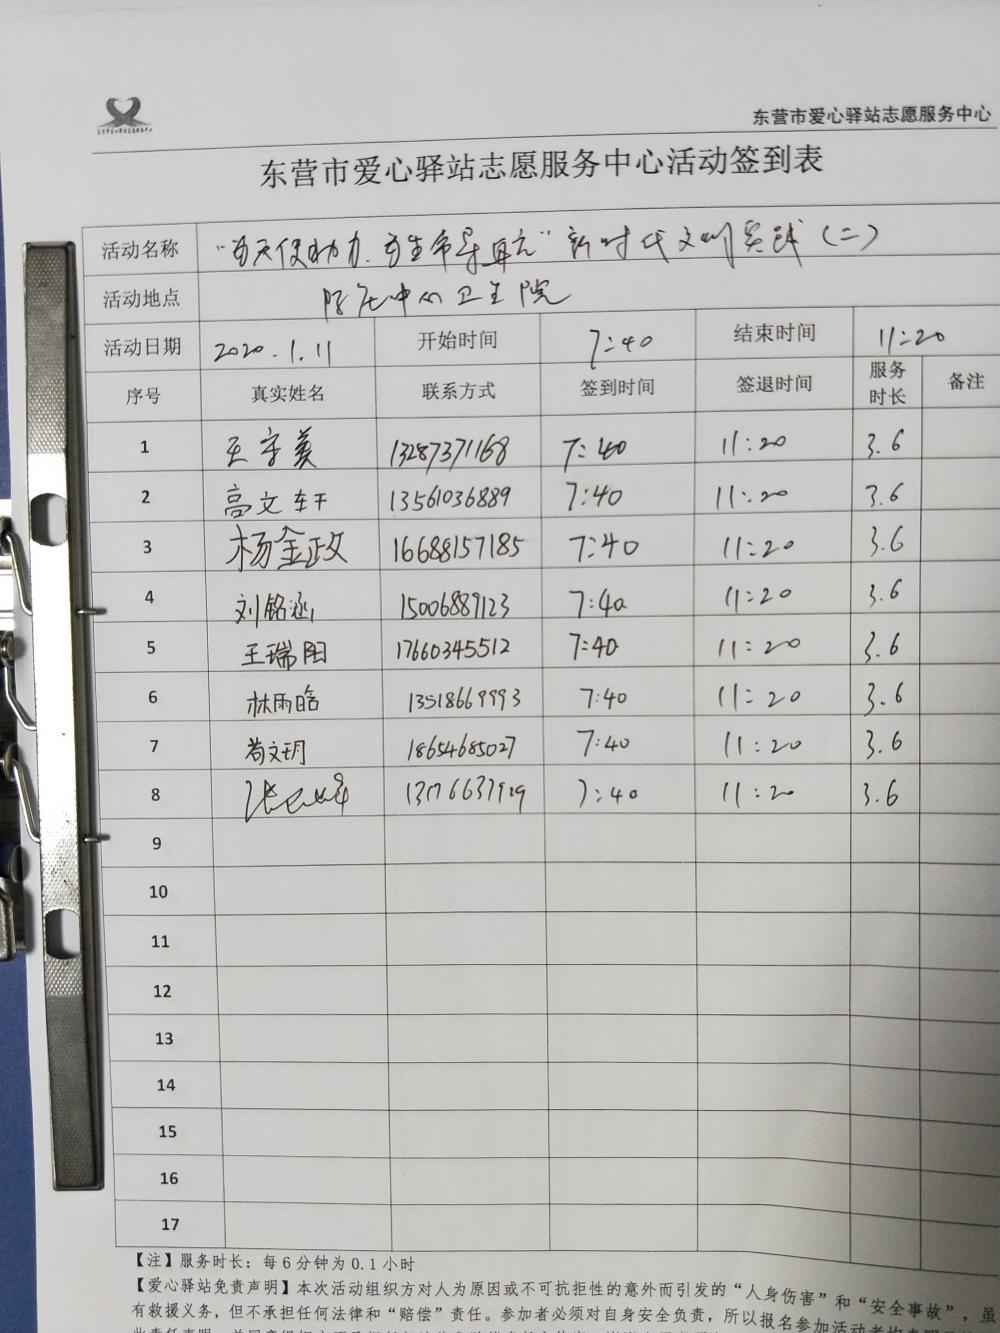 东营市爱心驿站志愿服务中心
东营市爱心驿站志愿服务中心活动签到表
活动名称 "为天使助力.为生命 " 新时代文明实践(二)
活动地点 中心卫生院
活动日期 2020.1.11 开始时间 7:40 结束时间 11:20
序号 真实姓名 联系方式 签到时间 签退时间 服务时长 备注
1 王字美 13287371168 7:40 11:20 3.6
2 高文轩 13561036889 7:40 11:20 3.6
3 杨金政 16688157185 7:40 11:20 3.6
4 刘铭涵 15006889123 7:40 11:20 3.6
5 王瑞阳 17660345512 7:40 11:20 3.6
6 林雨晗 13518669993 7:40 11:20 3.6
7 苟文玥 18654685027 7:40 11:20 3.6
8 7:40 11:20 3.6
9
10
11
12
13
14
15
16
17
【注】服务时长：每6分钟为0.1小时
【爱心驿站免责声明】本次活动组织方对人为原因或不可抗拒性的意外而引发的"人身伤害"和"安全事故"，虽
有救援义务，但不承担任何法律和"赔偿"责任。参加者必须对自身安全负责，所以报名参加活动者均